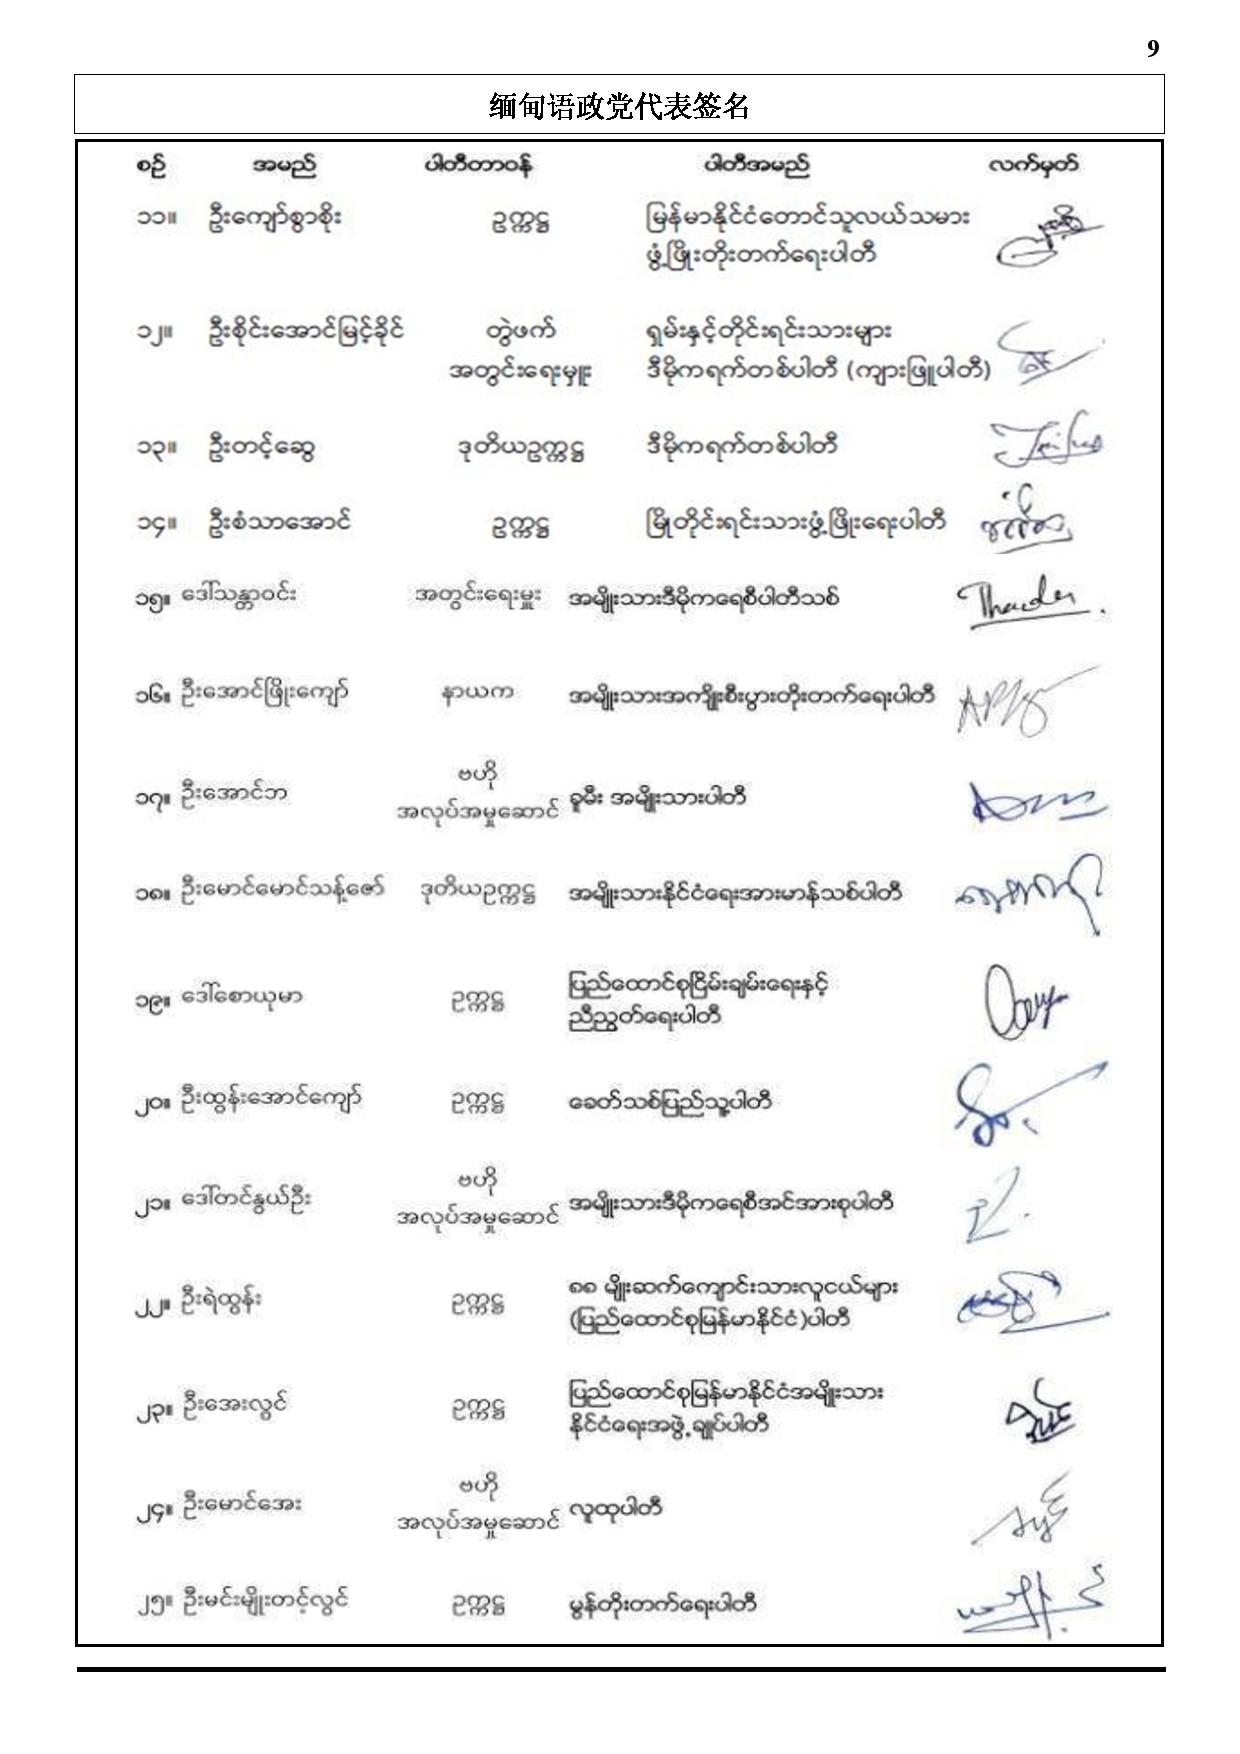 9
缅甸语政党代表签名
စဉ် အမည် ပါတီတာဝန် ပါတီအမည် လက်မှတ်
၁၁။ ဦးကျော်စွာစိုး ဥက္ကဋ္ဌ မြန်မာနိုင်ငံတောင်သူလယ်သမား
ဖွံ့ဖြိုးတိုးတက်ရေးပါတီ
၁၂။ ဦးစိုင်းအောင်မြင့်ခိုင် တွဲဖက် ရှမ်းနှင့်တိုင်းရင်းသားများ
အတွင်းရေးမှူး ဒီမိုကရက်တစ်ပါတီ (ကျားဖြူပါတီ)
၁၃။ ဦးတင့်ဆွေ ဒုတိယဥက္ကဋ္ဌ ဒီမိုကရက်တစ်ပါတီ
၁၄။ ဦးစံသာအောင် ဥက္ကဋ္ဌ မြိုတိုင်းရင်းသားဖွံ့ဖြိုးရေးပါတီ
၁၅။ ဒေါ်သန္တာဝင်း အတွင်းရေးမှူး အမျိုးသားဒီမိုကရေစီပါတီသစ်
၁၆။ ဦးအောင်ဖြိုးကျော် နာယက အမျိုးသားအကျိုးစီးပွားတိုးတက်ရေးပါတီ
၁၇။ ဦးအောင်ဘ ဗဟို
အလုပ်အမှုဆောင် ခူမီး အမျိုးသားပါတီ
၁၈။ ဦးမောင်မောင်သန့်ဇော် ဒုတိယဥက္ကဋ္ဌ အမျိုးသားနိုင်ငံရေးအားမာန်သစ်ပါတီ
၁၉။ ဒေါ်စောယုမာ ဥက္ကဋ္ဌ ပြည်ထောင်စုငြိမ်းချမ်းရေးနှင့်
ညီညွတ်ရေးပါတီ
၂၀။ ဦးထွန်းအောင်ကျော် ဥက္ကဋ္ဌ ခေတ်သစ်ပြည်သူ့ပါတီ
၂၁။ ဒေါ်တင်နွယ်ဦး ဗဟို
အလုပ်အမှုဆောင် အမျိုးသားဒီမိုကရေစီအင်အားစုပါတီ
၂၂။ ဦးရဲထွန်း ဥက္ကဋ္ဌ ၈၈ မျိုးဆက်ကျောင်းသားလူငယ်များ
(ပြည်ထောင်စုမြန်မာနိုင်ငံ)ပါတီ
၂၃။ ဦးအေးလွင် ဥက္ကဋ္ဌ ပြည်ထောင်စုမြန်မာနိုင်ငံအမျိုးသား
နိုင်ငံရေးအဖွဲ့ချုပ်ပါတီ
၂၄။ ဦးမောင်အေး ဗဟို
အလုပ်အမှုဆောင် လူထုပါတီ
၂၅။ ဦးမင်းမျိုးတင့်လွင် ဥက္ကဋ္ဌ မွန်တိုးတက်ရေးပါတီ